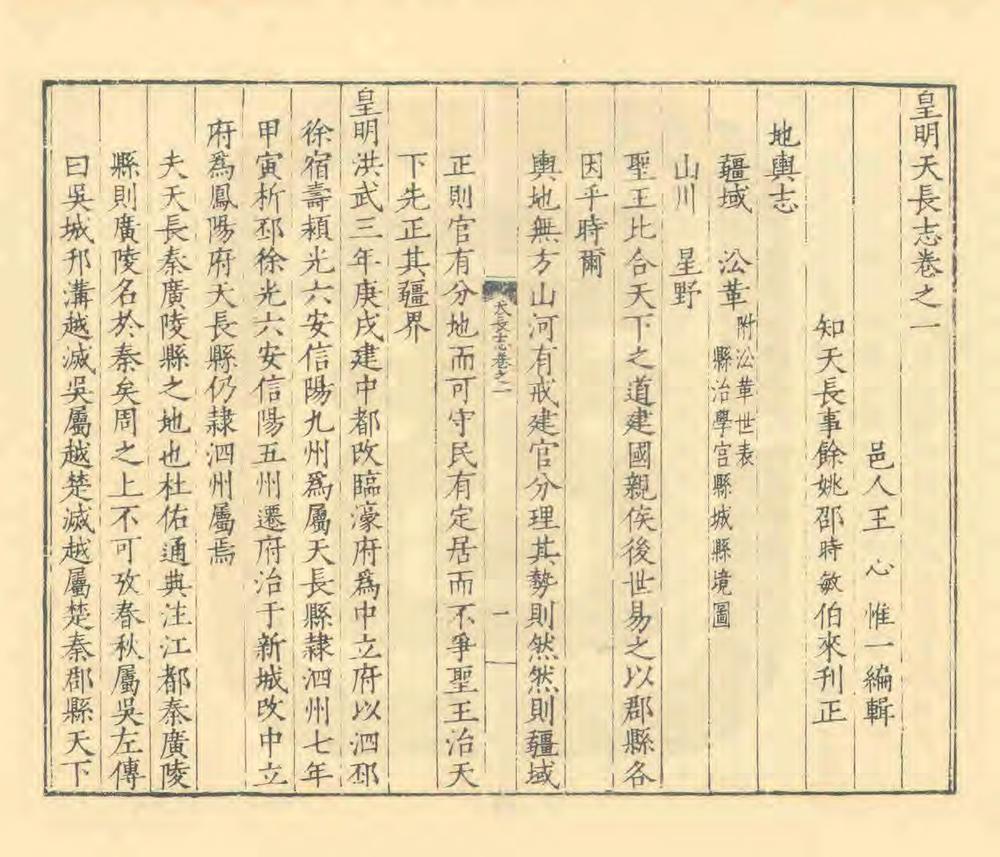 皇明天長志卷之一
邑人王心惟一編輯
知天長事餘姚邵時敏伯來刊正
地輿志
疆域 㳂革 附㳂革世表 縣治學宫縣城縣境圖
山川 星野
聖王比合天下之道建國親侯後世易之以郡縣各
因乎時爾
輿地無方山河有戒建官分理其勢則然然則疆域
天長志卷之一 一
正則官有分地而可守民有定居而不爭聖王治天
下先正其疆界
皇明洪武三年庚戌建中都改臨濠府爲中立府以泗邳
徐宿壽頴光六安信陽九州爲屬天長縣隷泗州七年
甲寅析邳徐光六安信陽五州遷府治于新城改中立
府爲鳳陽府天長縣仍隷泗州屬焉
夫天長秦廣陵縣之地也杜佑通典注江都秦廣陵
縣則廣陵名於秦矣周之上不可攷春秋屬吳左傳
曰吳城邗溝越滅吳屬越楚滅越屬楚秦郡縣天下